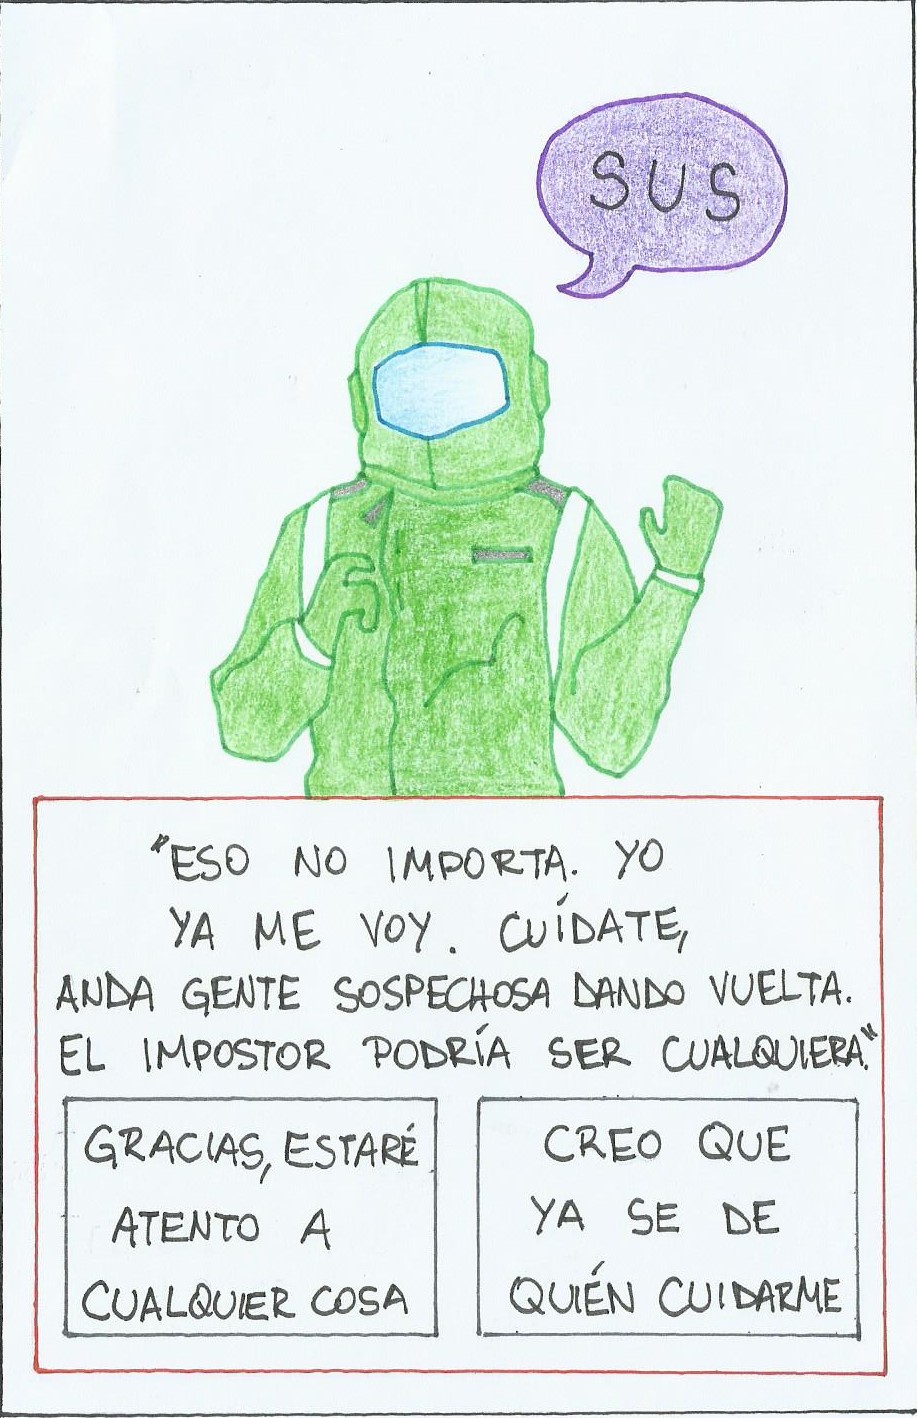 SUS
"ESO NO IMPORTA. YO
YA ME VOY. CUÍDATE,
ANDA GENTE SOSPECHOSA DANDO VUELTA.
EL IMPOSTOR PODRÍA SER CUALQUIERA."
GRACIAS, ESTARÉ
ATENTO A
CUALQUIER COSA
CREO QUE
YA SE DE
QUIÉN CUIDARME